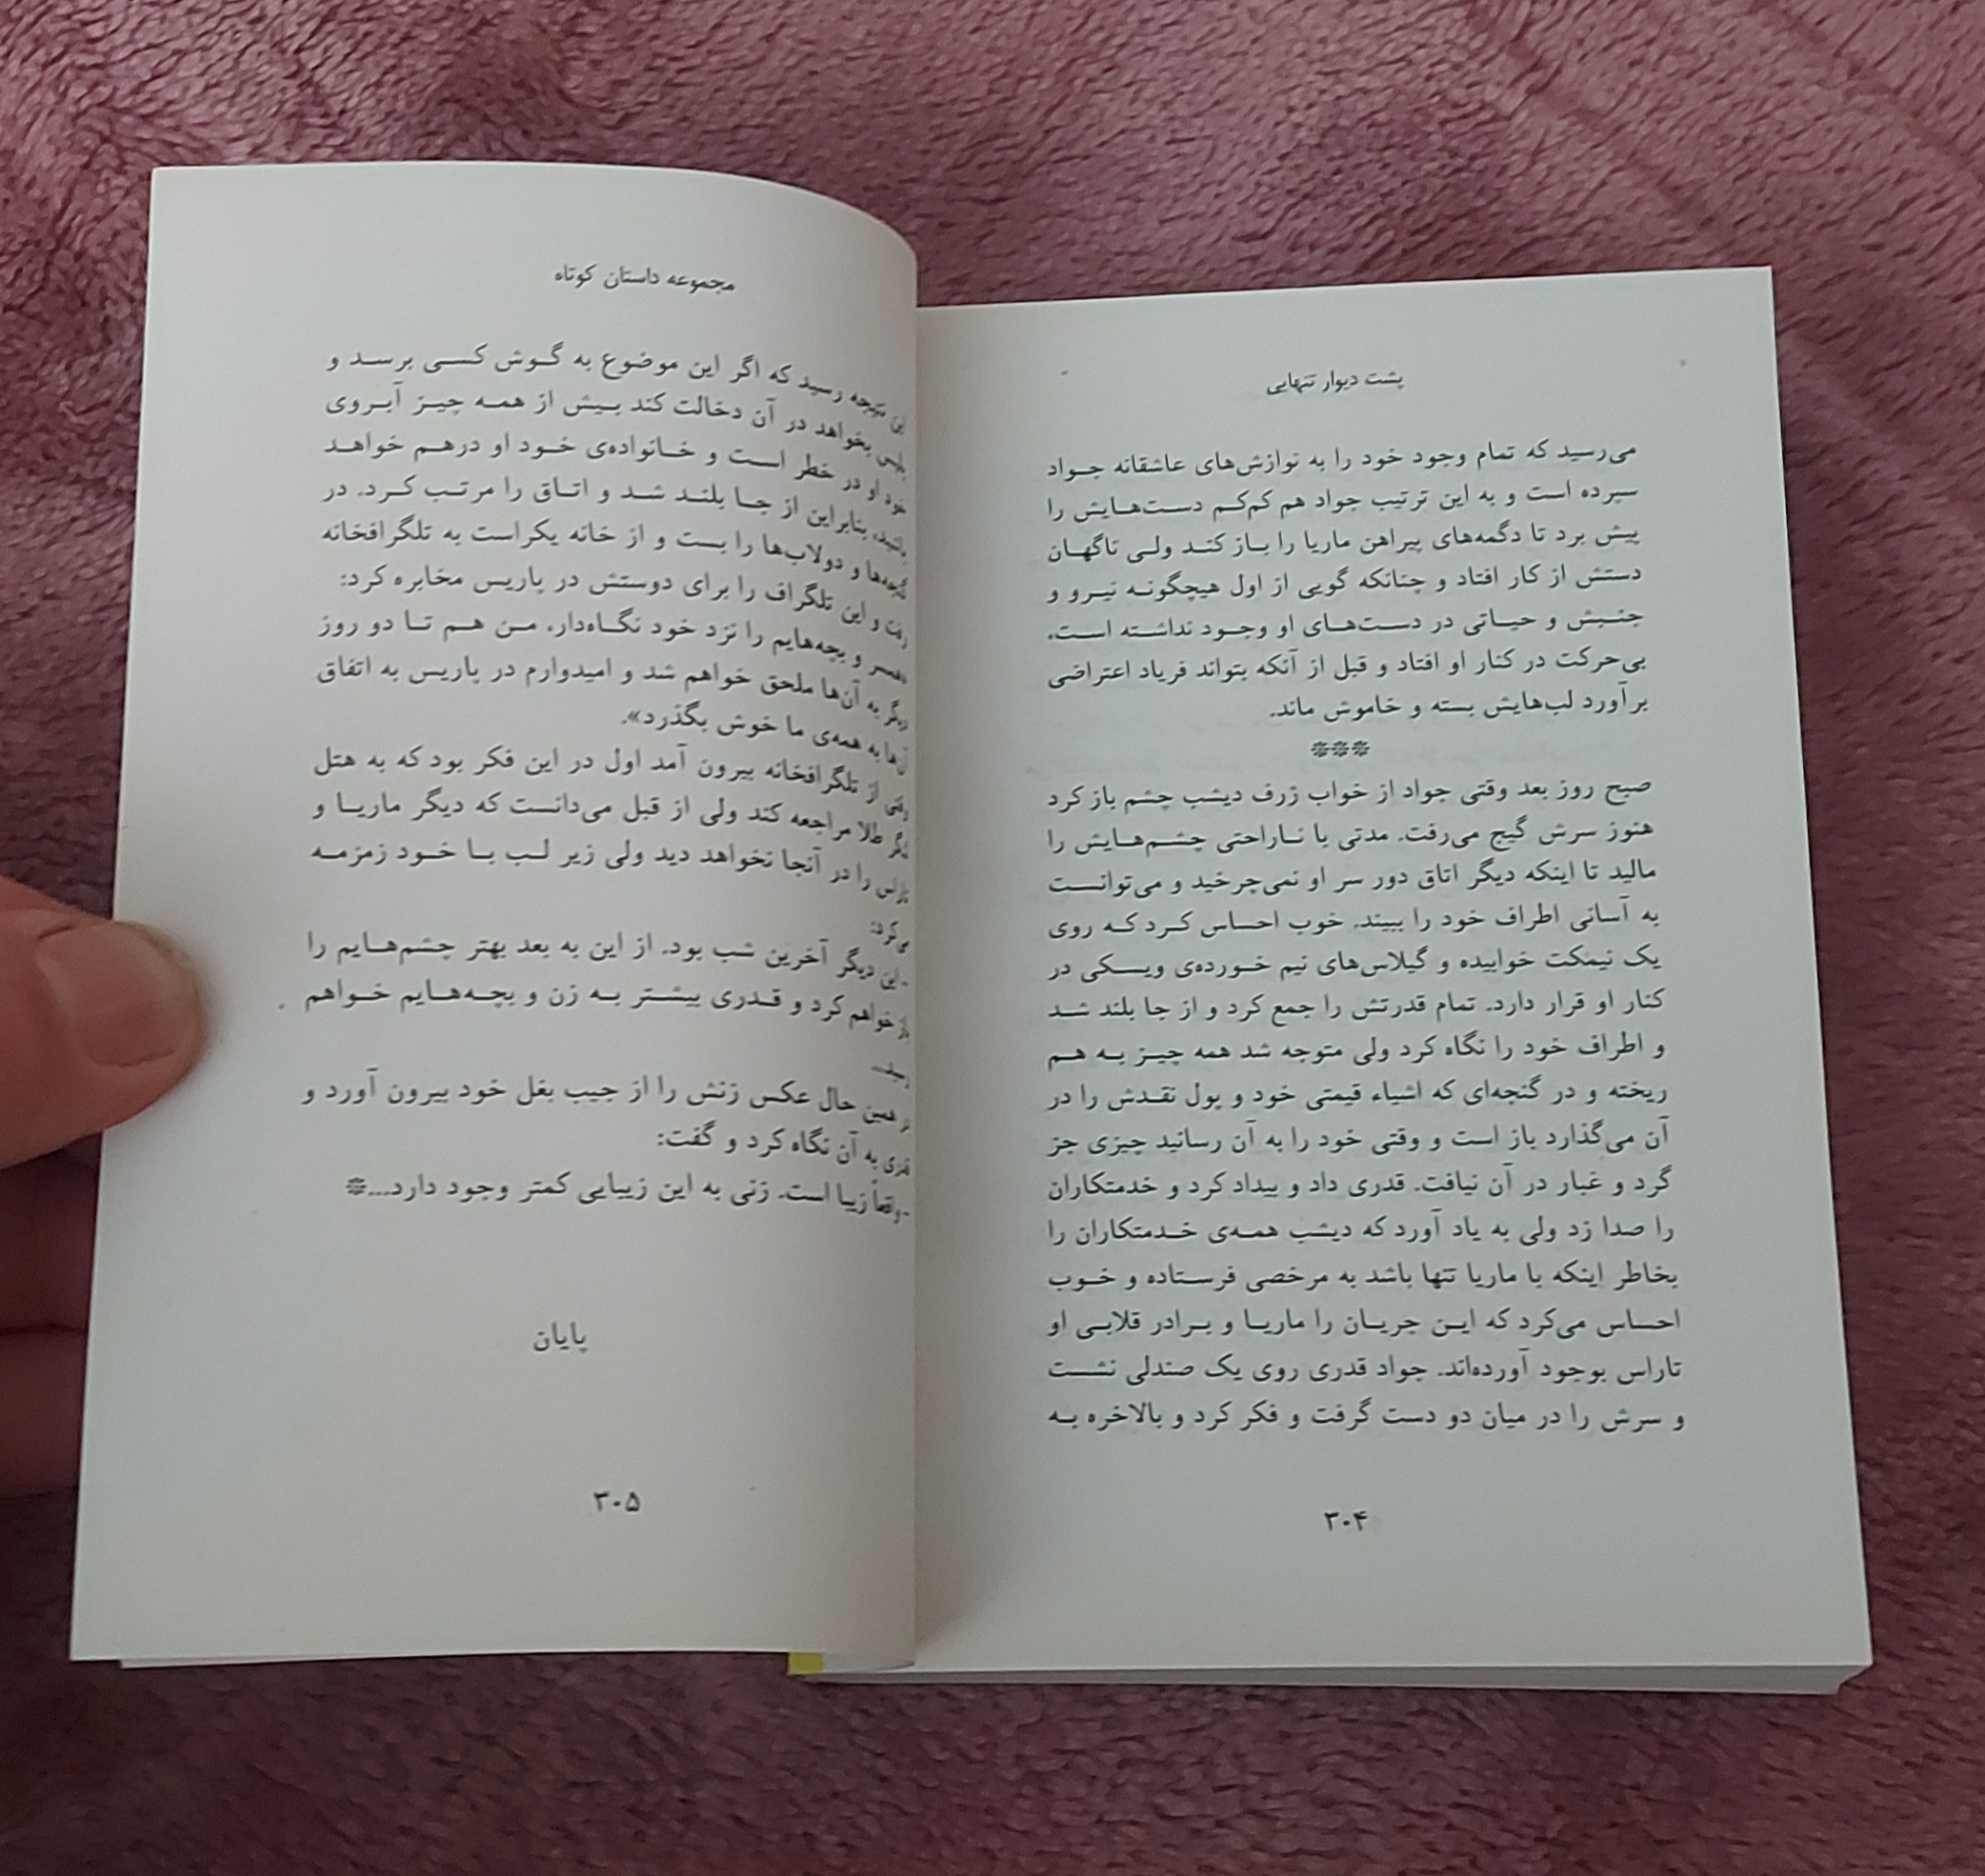 پشت دیوار تنهایی
می‌رسید که تمام وجود خود را به نوازش‌های عاشقانه جواد
سپرده است و به این ترتیب جواد هم کم‌کم دست‌هایش را
پیش برد تا دگمه‌های پیراهن ماریا را باز کند ولی ناگهان
دستش از کار افتاد و چنانکه گویی از اول هیچگونه نیرو و
جنبش و حیاتی در دست‌های او وجود نداشته است،
بی‌حرکت در کنار او افتاد و قبل از آنکه بتواند فریاد اعتراضی
برآورد لب‌هایش بسته و خاموش ماند.
***
صبح روز بعد وقتی جواد از خواب ژرف دیشب چشم باز کرد
هنوز سرش گیج می‌رفت. مدتی با ناراحتی چشم‌هایش را
مالید تا اینکه دیگر اتاق دور سر او نمی‌چرخید و می‌توانست
به آسانی اطراف خود را ببیند. خوب احساس کرد که روی
یک نیمکت خوابیده و گیلاس‌های نیم خورده‌ی ویسکی در
کنار او قرار دارد. تمام قدرتش را جمع کرد و از جا بلند شد
و اطراف خود را نگاه کرد ولی متوجه شد همه چیز به هم
ریخته و در گنجه‌ای که اشیاء قیمتی خود و پول نقدش را در
آن می‌گذارد باز است و وقتی خود را به آن رسانید چیزی جز
گرد و غبار در آن نیافت. قدری داد و بیداد کرد و خدمتکاران
را صدا زد ولی به یاد آورد که دیشب همه‌ی خدمتکاران را
بخاطر اینکه با ماریا تنها باشد به مرخصی فرستاده و خوب
احساس می‌کرد که این جریان را ماریا و برادر قلابی او
تاراس بوجود آورده‌اند. جواد قدری روی یک صندلی نشست
و سرش را در میان دو دست گرفت و فکر کرد و بالاخره به
۳۰۴
مجموعه داستان کوتاه
این نتیجه رسید که اگر این موضوع به گوش کسی برسد و
پلیس بخواهد در آن دخالت کند بیش از همه چیز آبروی
خود او در خطر است و خانواده‌ی خود او درهم خواهد
پاشید، بنابراین از جا بلند شد و اتاق را مرتب کرد. در
گنجه‌ها و دولاب‌ها را بست و از خانه یکراست به تلگرافخانه
رفت و این تلگراف را برای دوستش در پاریس مخابره کرد:
همسر و بچه‌هایم را نزد خود نگاه‌دار، من هم تا دو روز
دیگر به آن‌ها ملحق خواهم شد و امیدوارم در پاریس به اتفاق
آن‌ها به همه‌ی ما خوش بگذرد».
وقتی از تلگرافخانه بیرون آمد اول در این فکر بود که به هتل
طلا مراجعه کند ولی از قبل می‌دانست که دیگر ماریا و
تاراس را در آنجا نخواهد دید ولی زیر لب با خود زمزمه
می‌کرد:
-این دیگر آخرین شب بود. از این به بعد بهتر چشم‌هایم را
باز خواهم کرد و قدری بیشتر به زن و بچه‌هایم خواهم
در همین حال عکس زنش را از جیب بغل خود بیرون آورد و
قدری به آن نگاه کرد و گفت:
-واقعاً زیبا است. زنی به این زیبایی کمتر وجود دارد...*
پایان
۳۰۵